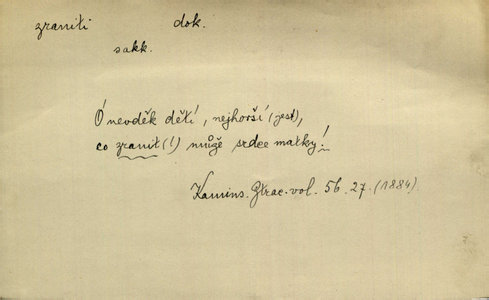 zraniti dok.
sakk.
Ó nevděk dětí, nejhorší (jest),
co zranit (!) může srdce matky!
Kamins. Ztrac. vol. 56. 27. (1884)